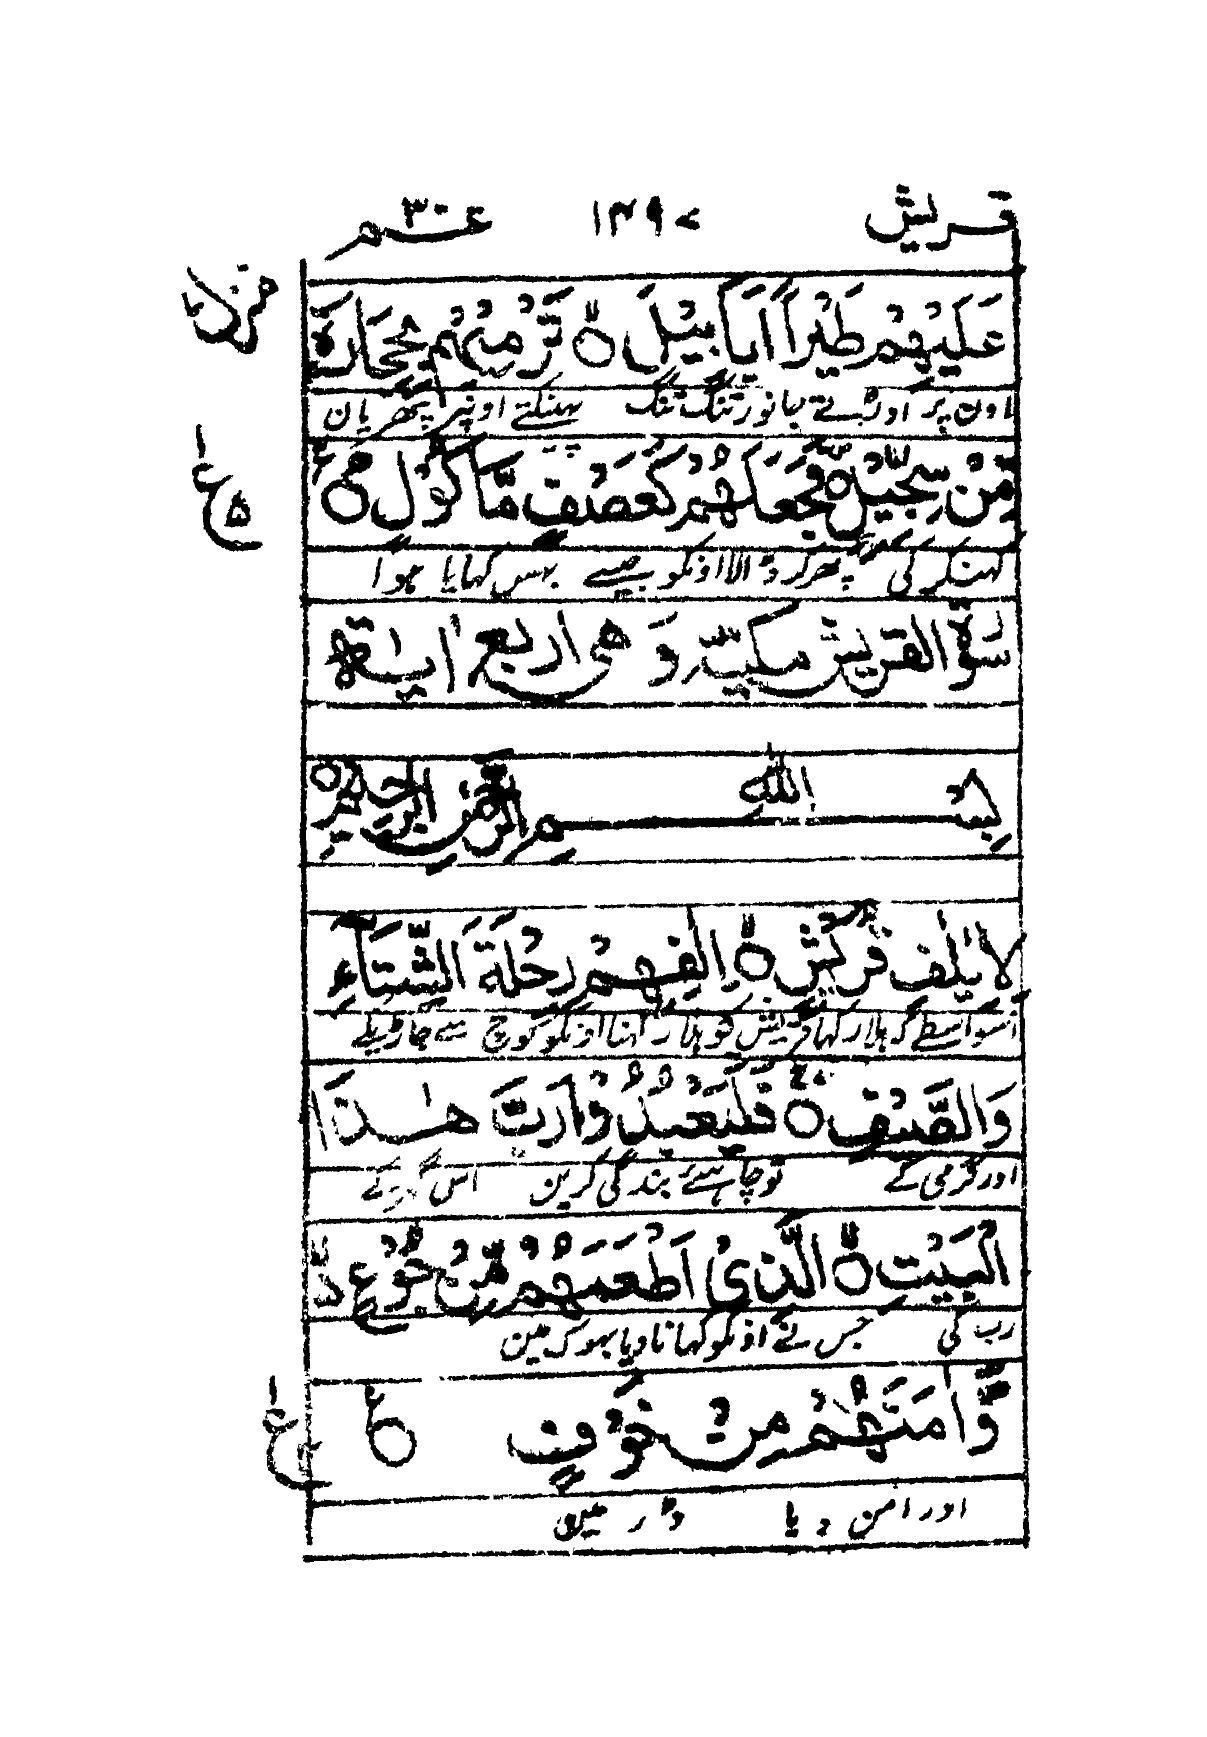 قریش ۱۴۹۷ عم ۳۰
منزل
عَلَیْهِمْ طَیْرًا اَبَابِیْلَ ۝ تَرْمِیْهِمْ بِحِجَارَةٍ
اون پر اوڑتے جانور تنگ تنگ پھینکتے اونپر پتھریان
مِّنْ سِجِّیْلٍ ۝ فَجَعَلَهُمْ كَعَصْفٍ مَّاْكُوْلٍ ۝
ع ۵
کہنکر کی پھر کر ڈالا اونکو جیسے بھس کھایا ہوا
سورة القریش مکیّة وَ هی اربع اٰیٰتٍ
بِسْمِ اللّٰهِ الرَّحْمٰنِ الرَّحِیْمِ ۝
لِاِیْلٰفِ قُرَیْشٍ ۝ اٖلٰفِهِمْ رِحْلَةَ الشِّتَآءِ
اسواسطے کہ ہلا رکھا قریش کو ہلا رکھنا اونکو کوچ سے جاڑیکے
وَالصَّیْفِ ۝ فَلْیَعْبُدُوْا رَبَّ هٰذَا
اور گرمی کے تو چاہئے بندگی کرین اس گھر کے
الْبَیْتِ ۝ الَّذِیْٓ اَطْعَمَهُمْ مِّنْ جُوْعٍ
رب کی جس نے اونکو کھانا دیا بھوک مین
وَّاٰمَنَهُمْ مِنْ خَوْفٍ ۝
ع
اور امن دیا ڈر مین